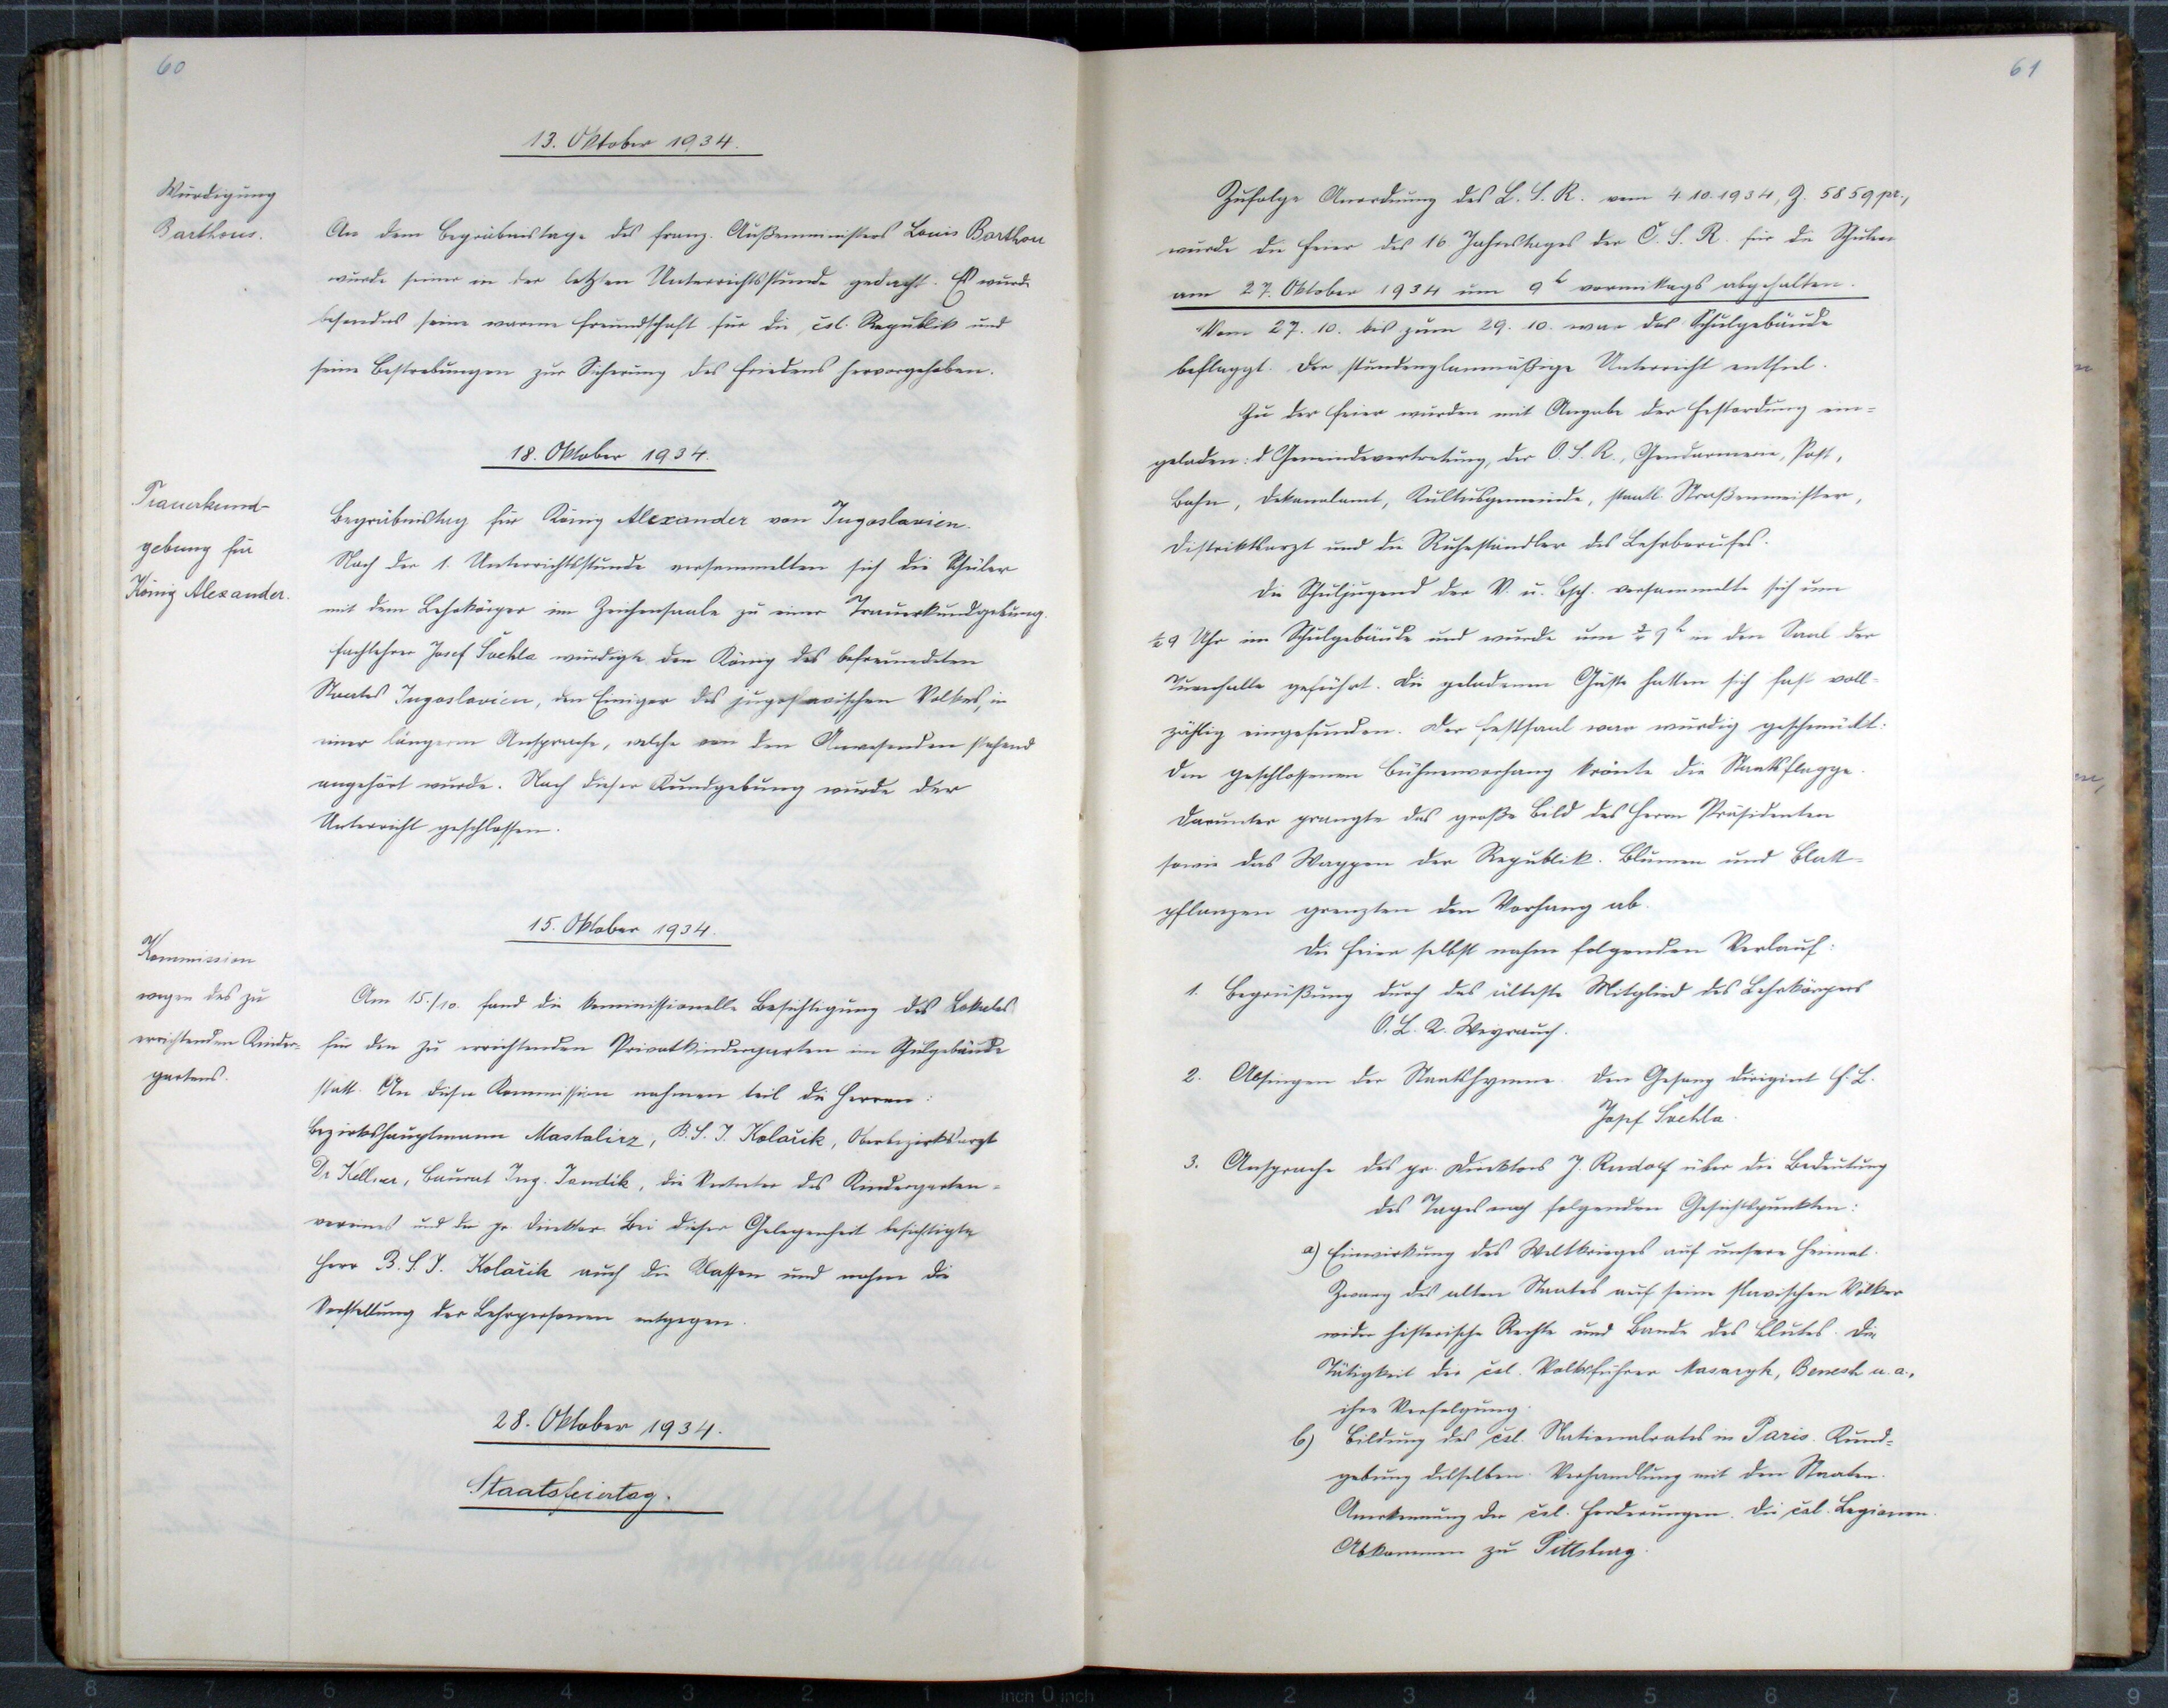 60
13. Oktober 1934.
Würdigung
Barthous.
An dem Begräbnistage des franz. Außenministers Louis Barthou
wurde seiner in der letzten Unterrichtsstunde gedacht. Es wurde
besonders seine warme Freundschaft für die čsl. Republik und
seine Bestrebungen zur Sicherung des Friedens hervorgehoben.
18. Oktober 1934.
Trauerkund-
gebung für
König Alexander.
Begräbnistag für König Alexander von Jugoslavien.
Nach der 1. Unterrichtsstunde versammelten sich die Schüler
mit dem Lehrkörper im Zeichensaale zu einer Trauerkundgebung.
Fachlehrer Josef Suchla würdigte den König des befreundeten
Staates Jugoslavien, den Einiger des jugoslavischen Volkes, in
einer längeren Ansprache, welche von den Anwesenden stehend
angehört wurde. Nach dieser Kundgebung wurde der
Unterricht geschlossen.
15. Oktober 1934.
Kommission
wegen des zu
errichtenden Kinder-
gartens.
Am 15./10. fand die kommissionelle Besichtigung des Lokales
für den zu errichtenden Privatkindergarten im Schulgebäude
statt. An dieser Kommission nahmen teil die Herren:
Bezirkshauptmann Mastalirz, B.S.I. Kolařik, Oberbezirksarzt
Dr Kellner, Baurat Ing. Jandik, die Vertreter des Kindergarten-
vereines und der pr. Direktor. Bei dieser Gelegenheit besichtigte
Herr B.S.I. Kolařik auch die Klassen und nahm die
Vorstellung der Lehrpersonen entgegen.
28. Oktober 1934.
Staatsfeiertag.
61
Zufolge Anordnung des L.S.R. vom 4.10.1934, Z. 5859 pr.,
wurde die Feier des 16 Jahrestages der Č.S.R. für die Schulen
am 27. Oktober 1934 um 9h vormittags abgehalten.
Vom 27.10. bis zum 29.10. war das Schulgebäude
beflaggt. Der stundenplanmäßige Unterricht entfiel.
Zu der Feier wurden mit Angabe der Festordnung ein-
geladen: d Gemeindevertretung, der O.S.R., Gendarmerie, Post,
Bahn, Dekanalamt, Kultusgemeinde, staatl. Straßenmeister,
Distriktsarzt und die Ruheständler des Lehrberufes.
Die Schuljugend der V. u. Bsch. versammelte sich um
½9 Uhr im Schulgebäude und wurde um ¾9h in den Saal der
Turnhalle geführt. Die geladenen Gäste hatten sich fast voll-
zählig eingefunden. Der Festsaal war würdig geschmückt:
Den geschlossenen Bühnenvorhang krönte die Staatsflagge.
Darunter prangte das große Bild des Herrn Präsidenten
sowie das Wappen der Republik. Blumen und Blatt-
pflanzen grenzten den Vorhang ab.
Die Feier selbst nahm folgenden Verlauf:
1. Begrüßung durch das älteste Mitglied des Lehrkörpers
O.L. R. Weyrauch.
2. Absingen der Staatshymne. Den Gesang dirigiert F.L.
Josef Suchla.
3. Ansprache des pr. Direktors J. Rudolf über die Bedeutung
des Tages nach folgenden Gesichtspunkten:
a) Einwirkung des Weltkrieges auf unsere Heimat.
Zwang des alten Staates auf seine slavischen Völker
wider historische Rechte und Bande des Blutes. Die
Tätigkeit der čsl. Volksführer Masaryk, Benesch u.a.,
ihre Verfolgung.
b) Bildung des čsl. Nationalrates in Paris. Kund-
gebung desselben. Verhandlung mit den Staaten.
Anerkennung der čsl. Forderungen. Die čsl. Legionen.
Abkommen zu Pittsburg.